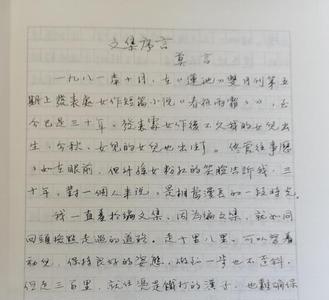 文集序言
莫言
一九八一年十月，在《蓮池》雙月刊第五
期上發表處女作短篇小說《春夜雨霏霏》，至
今已是三十年。發表處女作後不久我的女兒出
生，今秋，女兒的女兒也出生了。儘管往事歷
歷如在眼前，但外孫女粉紅的笑臉告訴我，三
十年，對一個人來說，是相當漫長的一段時光。
我一直看於編文集，因為編文集，就如同
回頭檢點走過的道路。走十里八里，可以
幼兒，保持良好的姿態，
但走三百里，就任憑是鐵打的漢子，也難確保